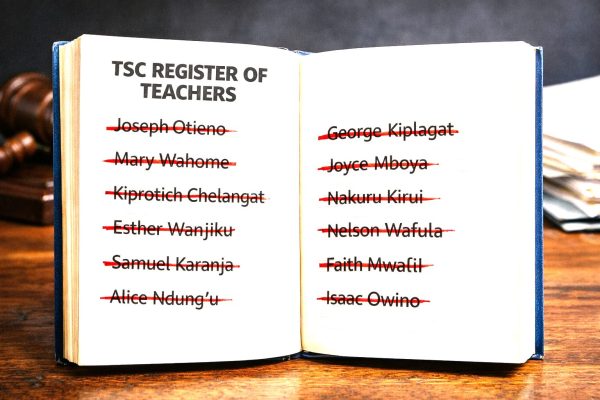 TSC REGISTER OF
TEACHERS
Joseph Otieno
Mary Wahome
Kiprotich Chelangat
Esther Wanjiku
Samuel Karanja
Alice Ndung'u
George Kiplagat
Joyce Mboya
Nakuru Kirui
Nelson Wafula
Faith
Isaac Owino